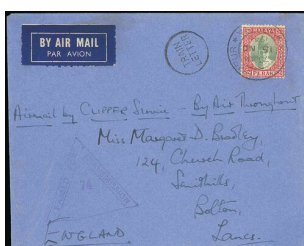 BY AIR MAIL
PAR AVION
TRAIN
LETTER
MALAYA
PERAK
Airmail by CLIPPER Service - By Air Throughout
Miss Margaret D. Bradley,
124, Church Road,
Smithills,
Bolton,
Lancs.
ENGLAND